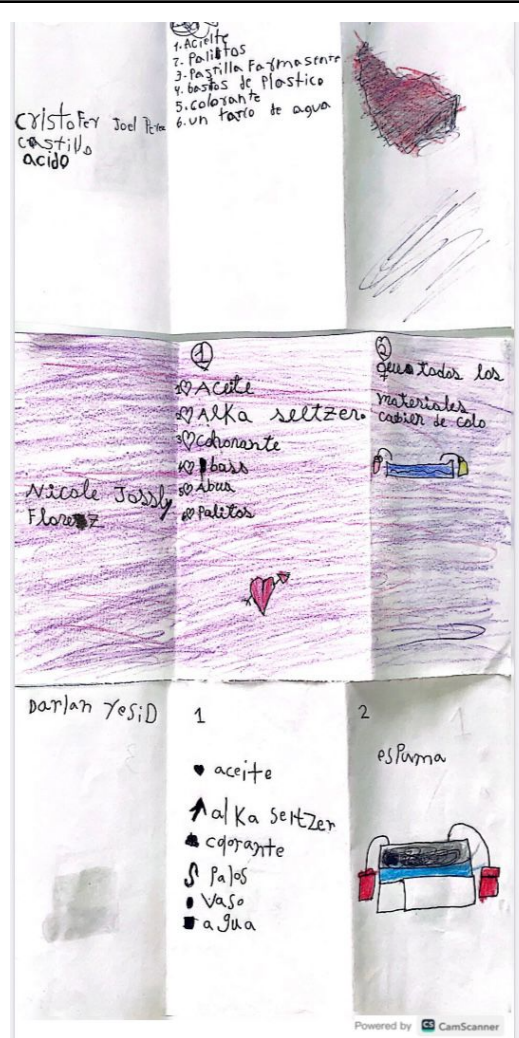 Cristofer Joel Perez
castillo
acido
1. Acielte
2. Palittos
3. Pastilla Farmasente
4. bastos de Plastico
5. colorante
6. un tarro de agua
Nicole Jossly
Florez
1
1 Aceite
2 Alka seltzer.
3 Cohorante
4 bass
5 Abua
6 Palitos
2
que todos los
materiales
cabien de colo
Darlan YesiD
1
aceite
alKa SertZer
colorante
Palos
Vaso
agua
2
esPuma
Powered by CS CamScanner